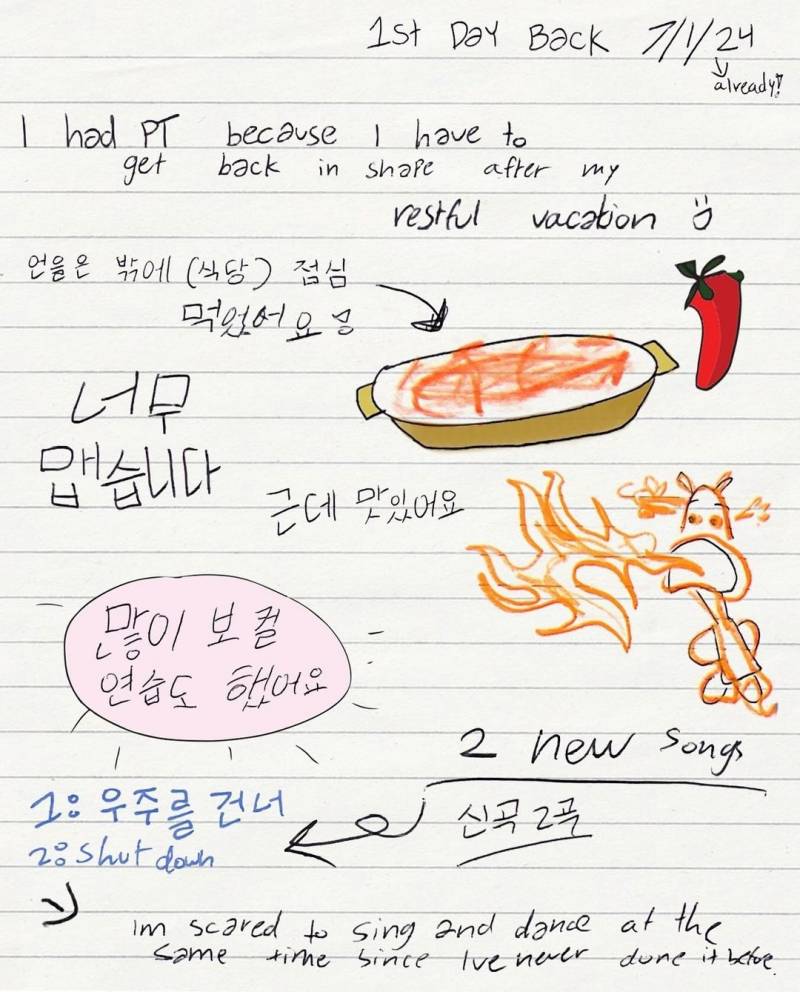 1st Day Back 7/1/24
already!
I had PT because I have to
get back in shape after my
restful vacation
언을은 밖에 (식당) 점심
먹었어요
너무
맵습니다
근데 맛있어요
많이 보컬
연습도 했어요
2 new songs
신곡 2곡
1: 우주를 건너
2: Shut down
im scared to sing and dance at the
same time since Ive never done it before.